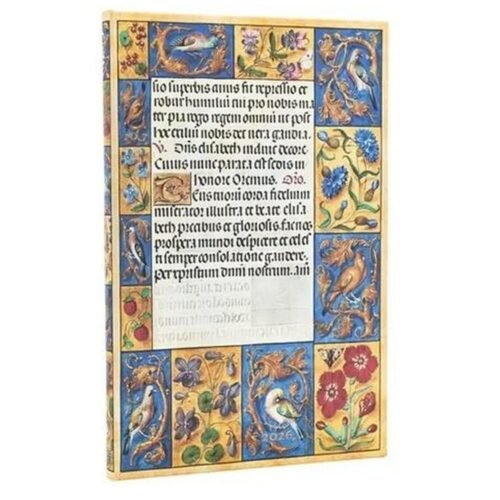 sio superbis anus fit repressio et
robur humiliū tui pro nobis ma
ter pia rogo regem omniū ut post
hoc exiliū nobis det vera gaudia.
V. Diis elisabeth in diue decore.
Cuius nunc parata est sedis in
honore Oremus. Oro.
Eus tuorū corda fidelium
miserator illustra et beate elisa
beth precibus et gloriosis fac nos
prospera mundi despicere et celes
ti semper consolatione gaudere.
per xpistum dnm nostrum. am
2026